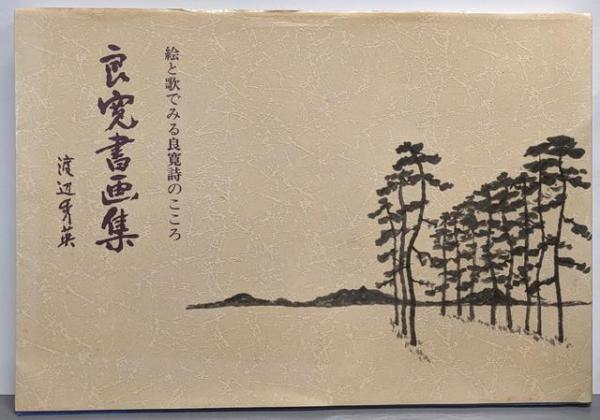 絵と歌でみる良寛詩のこころ
良寛書画集
渡辺秀英